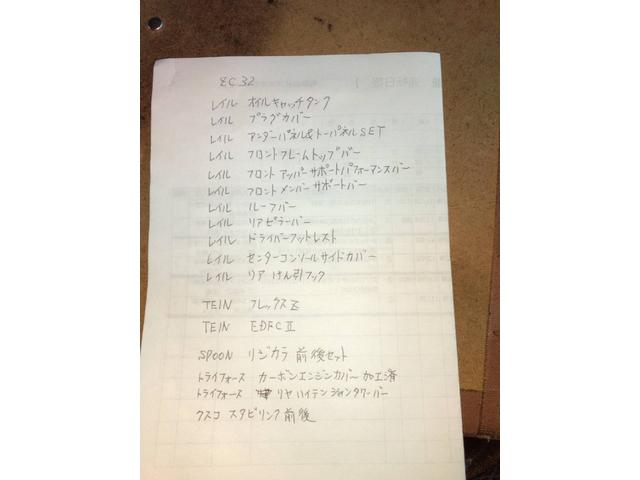 ZC32
レイル オイルキャッチタンク
レイル プラグカバー
レイル アンダーパネル&トーパネルSET
レイル フロントフレームトップバー
レイル フロントアッパーサポートパフォーマンスバー
レイル フロントメンバーサポートバー
レイル ルーフバー
レイル リアピラーバー
レイル ドライバーフットレスト
レイル センターコンソールサイドカバー
レイル リア けん引フック
TEIN フレックスZ
TEIN EDFCⅡ
SPOON リジカラ 前後セット
トライフォース カーボンエンジンカバー 加工済
トライフォース リヤハイテンションタワーバー
クスコ スタビリンク前後